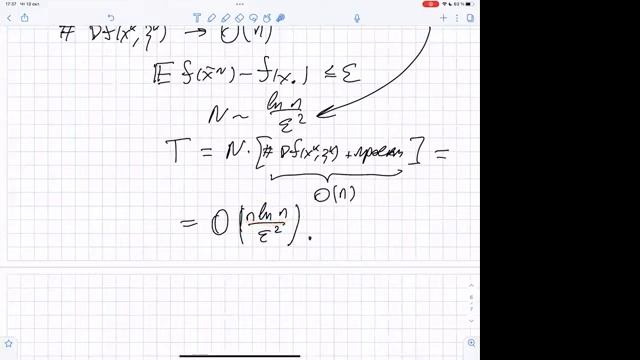 17:37 Чт 13 окт.
63 %
# ∇f(xᵏ, ξᵏ) → O(n)
E f(x̄ᴺ) – f(x*) ≤ ε
N ~ ln n / ε²
T = N · [# ∇f(xᵏ, ξᵏ) + проекц] =
O(n)
= O(n ln n / ε²).
6
7